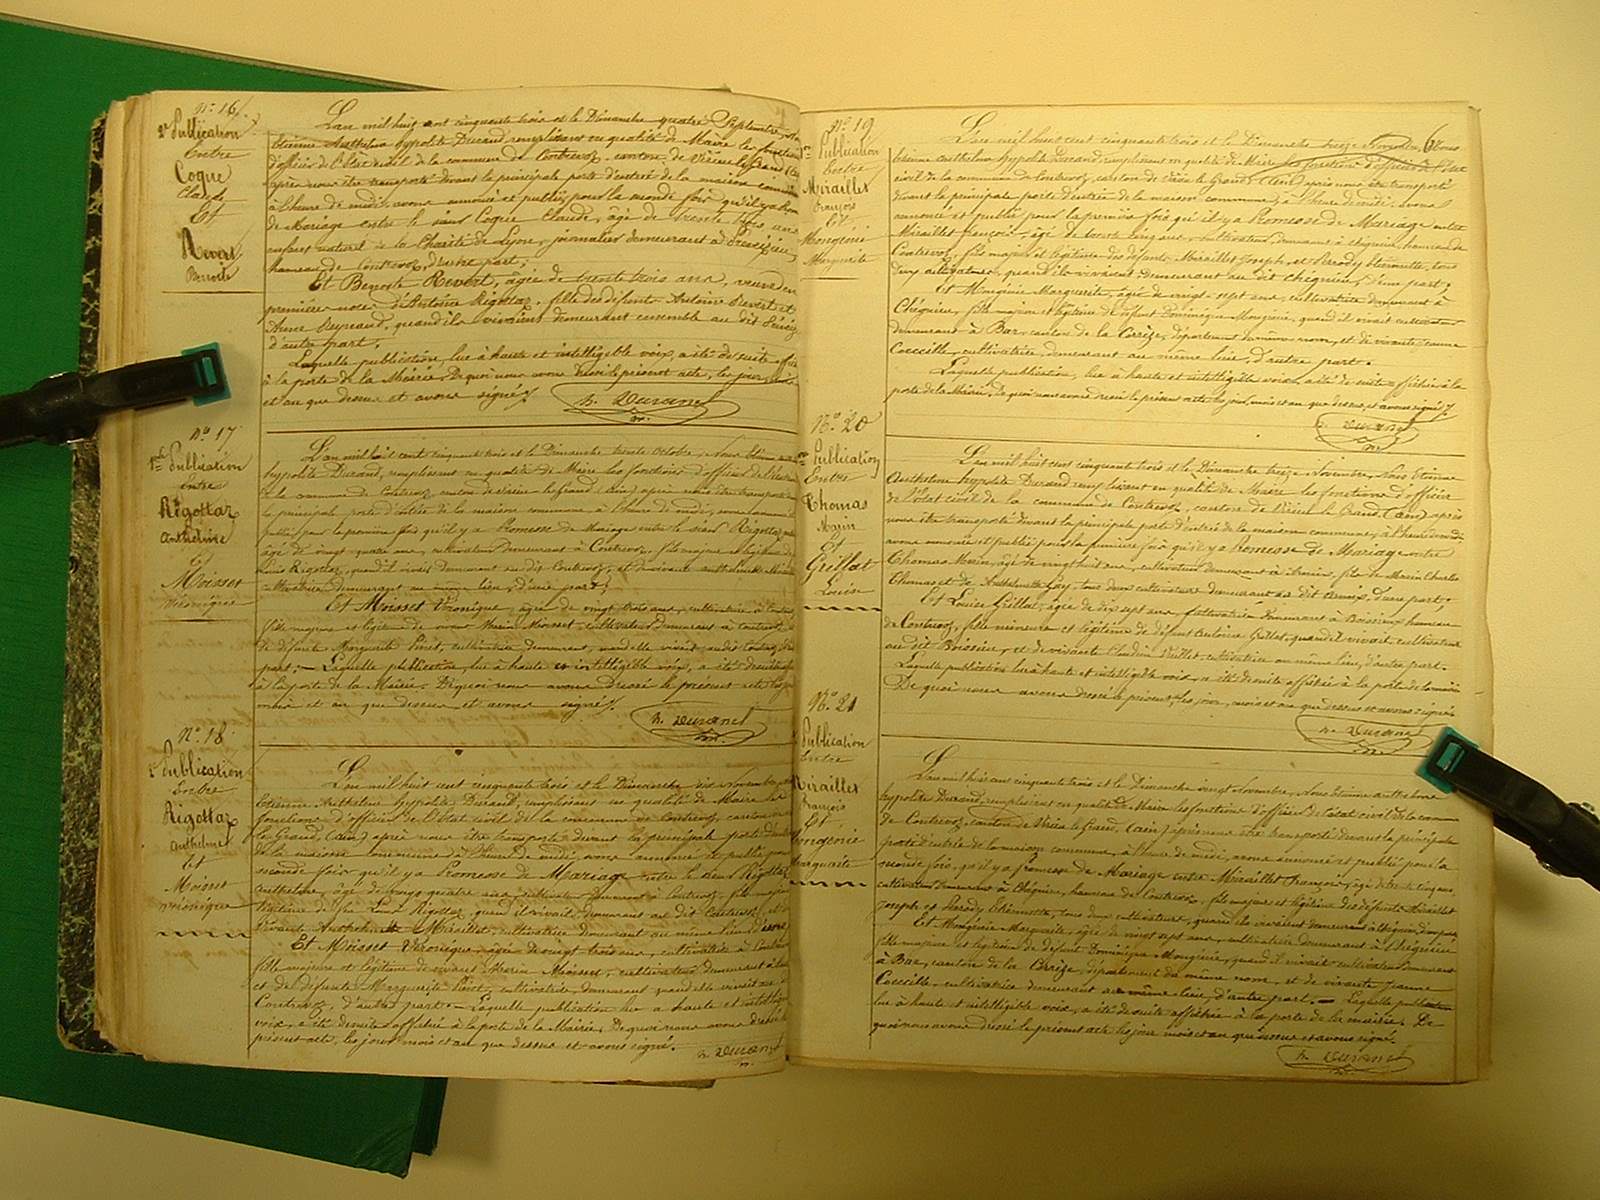 N° 16.
2e Publication
Entre
Cogue
Claude
Et
Revert
Benoite
L'an mil huit cent cinquante trois et le Dimanche quatre Septembre,
Etienne Anthelme hypolite Durand, remplissant en qualité de Maire les fonctions
d'officier de l'état civil de la commune de Contrevoz, canton de Virieu le Grand (Ain)
après nous être transporté devant la principale porte d'entrée de la maison commune
à l'heure de midi, avons annoncé et publié pour la seconde fois qu'il y a Promesse
de Mariage entre le sieur Cogue Claude, âgé de trente trois ans
enfant naturel de la Charité de Lyon, journalier demeurant à
hameau de Contrevoz, d'une part;
Et Benoite Revert, âgée de trente trois ans, veuve en
premières noces d'Antoine Rigollaz, fille des défunts Antoine Revert et
Anne Reynaud, quand ils vivaient demeurant ensemble au dit
d'autre part.
Laquelle publication, lue à haute et intelligible voix, a été de suite affichée
à la porte de la Mairie. De quoi nous avons dressé le présent acte, les jour, mois
et an que dessus et avons signé
h. Durand
N° 17
1re Publication
Entre
Rigollaz
Anthelme
Et
Moisset
Véronique
L'an mil huit cent cinquante trois et le Dimanche trente octobre, Nous Etienne
hypolite Durand, remplissant en qualité de Maire les fonctions d'officier de l'état
de la commune de Contrevoz, canton de Virieu le Grand (Ain) après nous être transporté
la principale porte d'entrée de la maison commune, à l'heure de midi, avons annoncé
publié pour la première fois qu'il y a Promesse de Mariage entre le sieur Rigollaz
âgé de vingt quatre ans, cultivateur demeurant à Contrevoz, fils majeur et légitime de
Louis Rigollaz, quand il vivait demeurant au dit Contrevoz, et de vivante Anthelmette
cultivatrice demeurant au même lieu, d'une part;
Et Moisset Véronique, âgée de vingt trois ans, cultivatrice à Contrevoz
fille majeure et légitime de vivant Marin Moisset, cultivateur demeurant à Contrevoz
de défunte Marguerite Pinet, cultivatrice demeurant, quand elle vivait au dit Contrevoz
part; — Laquelle publication, lue à haute et intelligible voix, a été de suite
à la porte de la Mairie. De quoi nous avons dressé le présent acte les jour
mois et an que dessus et avons signé
h. Durand
N° 18
2e Publication
Entre
Rigollaz
Anthelme
Et
Moisset
Véronique
L'an mil huit cent cinquante trois et le Dimanche six Novembre,
Etienne Anthelme hypolite Durand, remplissant en qualité de Maire les
fonctions d'officier de l'état civil de la commune de Contrevoz, canton de
le Grand, (Ain) après nous être transporté devant la principale porte d'entrée
de la maison commune à l'heure de midi, avons annoncé et publié pour
seconde fois qu'il y a Promesse de Mariage entre le sieur Rigollaz
Anthelme, âgé de vingt quatre ans, cultivateur demeurant à Contrevoz, fils majeur
légitime de feu Louis Rigollaz, quand il vivait demeurant au dit Contrevoz, et de
vivante Anthelmette Miraillet, cultivatrice demeurant au même lieu, d'une
Et Moisset Véronique, âgée de vingt trois ans, cultivatrice à Contrevoz
fille majeure et légitime de vivant Marin Moisset, cultivateur demeurant à
et de défunte Marguerite Pinet, cultivatrice, demeurant quand elle vivait au
Contrevoz, d'autre part — Laquelle publication lue à haute et intelligible
voix, a été de suite affichée à la porte de la Mairie. De quoi nous avons dressé le
présent acte, les jour mois et an que dessus et avons signé.
h. Durand
N° 19
1re Publication
Entre
Miraillet
François
Et
Mongénie
Marguerite
6
L'an mil huit cent cinquante trois et le Dimanche treize Novembre, Nous
Etienne Anthelme hypolite Durand, remplissant en qualité de Maire les fonctions d'officier de l'état
civil de la commune de Contrevoz, canton de Virieu le Grand, (Ain) après nous être transporté
devant la principale porte d'entrée de la maison commune, à l'heure de midi, avons
annoncé et publié pour la première fois qu'il y a Promesse de Mariage entre
Miraillet François, âgé de trente cinq ans, cultivateur, demeurant à Chéguieu, hameau de
Contrevoz, fils majeur et légitime des défunts Miraillet Joseph et Parody Etiennette, tous
deux cultivateurs, quand ils vivaient, demeurant au dit Chéguieu, d'une part;
Et Mongénie Marguerite, âgée de vingt sept ans, cultivatrice demeurant à
Chéguieu, fille majeure et légitime de défunt Dominique Mongénie, quand il vivait cultivateur
demeurant à Bar, canton de la Corrèze, département du même nom, et de vivante Jeanne
Coecille, cultivatrice, demeurant au même lieu, d'autre part.
Laquelle publication, lue à haute et intelligible voix, a été de suite affichée à la
porte de la Mairie. De quoi nous avons dressé le présent acte les jour, mois et an que dessus, et avons signé
h. Durand
N° 20
1re Publication
Entre
Thomas
Marin
Et
Grillat
Louise
L'an mil huit cent cinquante trois et le Dimanche treize Novembre, Nous Etienne
Anthelme hypolite Durand remplissant en qualité de Maire les fonctions d'officier
de l'état civil de la commune de Contrevoz, canton de Virieu le Grand, (Ain) après
nous être transporté devant la principale porte d'entrée de la maison commune, à l'heure de midi
avons annoncé et publié pour la première fois qu'il y a Promesse de Mariage entre
Thomas Marin, âgé de vingt huit ans, cultivateur demeurant à, fils de Marin Charles
Thomas et de Anthelmette Gay, tous deux cultivateurs demeurant au dit, d'une part;
Et Louise Grillat, âgée de dix sept ans, cultivatrice demeurant à Boissieu, hameau
de Contrevoz, fille mineure et légitime de défunt Antoine Grillat, quand il vivait cultivateur
au dit Boissieu, et de vivante Claudine, cultivatrice au même lieu, d'autre part.
Laquelle publication lue à haute et intelligible voix, a été de suite affichée à la porte de la mairie
De quoi nous avons dressé le présent, les jour, mois et an que dessus et avons signé
h. Durand
N° 21
Publication
Entre
Miraillet
François
Et
Mongénie
Marguerite
L'an mil huit cent cinquante trois et le Dimanche vingt Novembre, Nous Etienne Anthelme
hypolite Durand, remplissant en qualité de Maire les fonctions d'officier de l'état civil de la commune
de Contrevoz, canton de Virieu le Grand, (Ain) après nous être transporté devant la principale
porte d'entrée de la maison commune, à l'heure de midi, avons annoncé et publié pour la
seconde fois, qu'il y a Promesse de Mariage entre Miraillet François, âgé de trente cinq ans,
cultivateur demeurant à Chéguieu, hameau de Contrevoz, fils majeur et légitime des défunts Miraillet
Joseph et Parody Etiennette, tous deux cultivateurs, quand ils vivaient demeurant à Chéguieu, d'une part
Et Mongénie Marguerite, âgée de vingt sept ans, cultivatrice demeurant à Chéguieu
fille majeure et légitime de défunt Dominique Mongénie, quand il vivait cultivateur demeurant
à Bar, canton de la Corrèze, département du même nom, et de vivante Jeanne
Coecille, cultivatrice demeurant au même lieu, d'autre part. — Laquelle publication
lue à haute et intelligible voix, a été de suite affichée à la porte de la mairie. De
quoi nous avons dressé le présent acte les jour mois et an que dessus et avons signé.
h. Durand